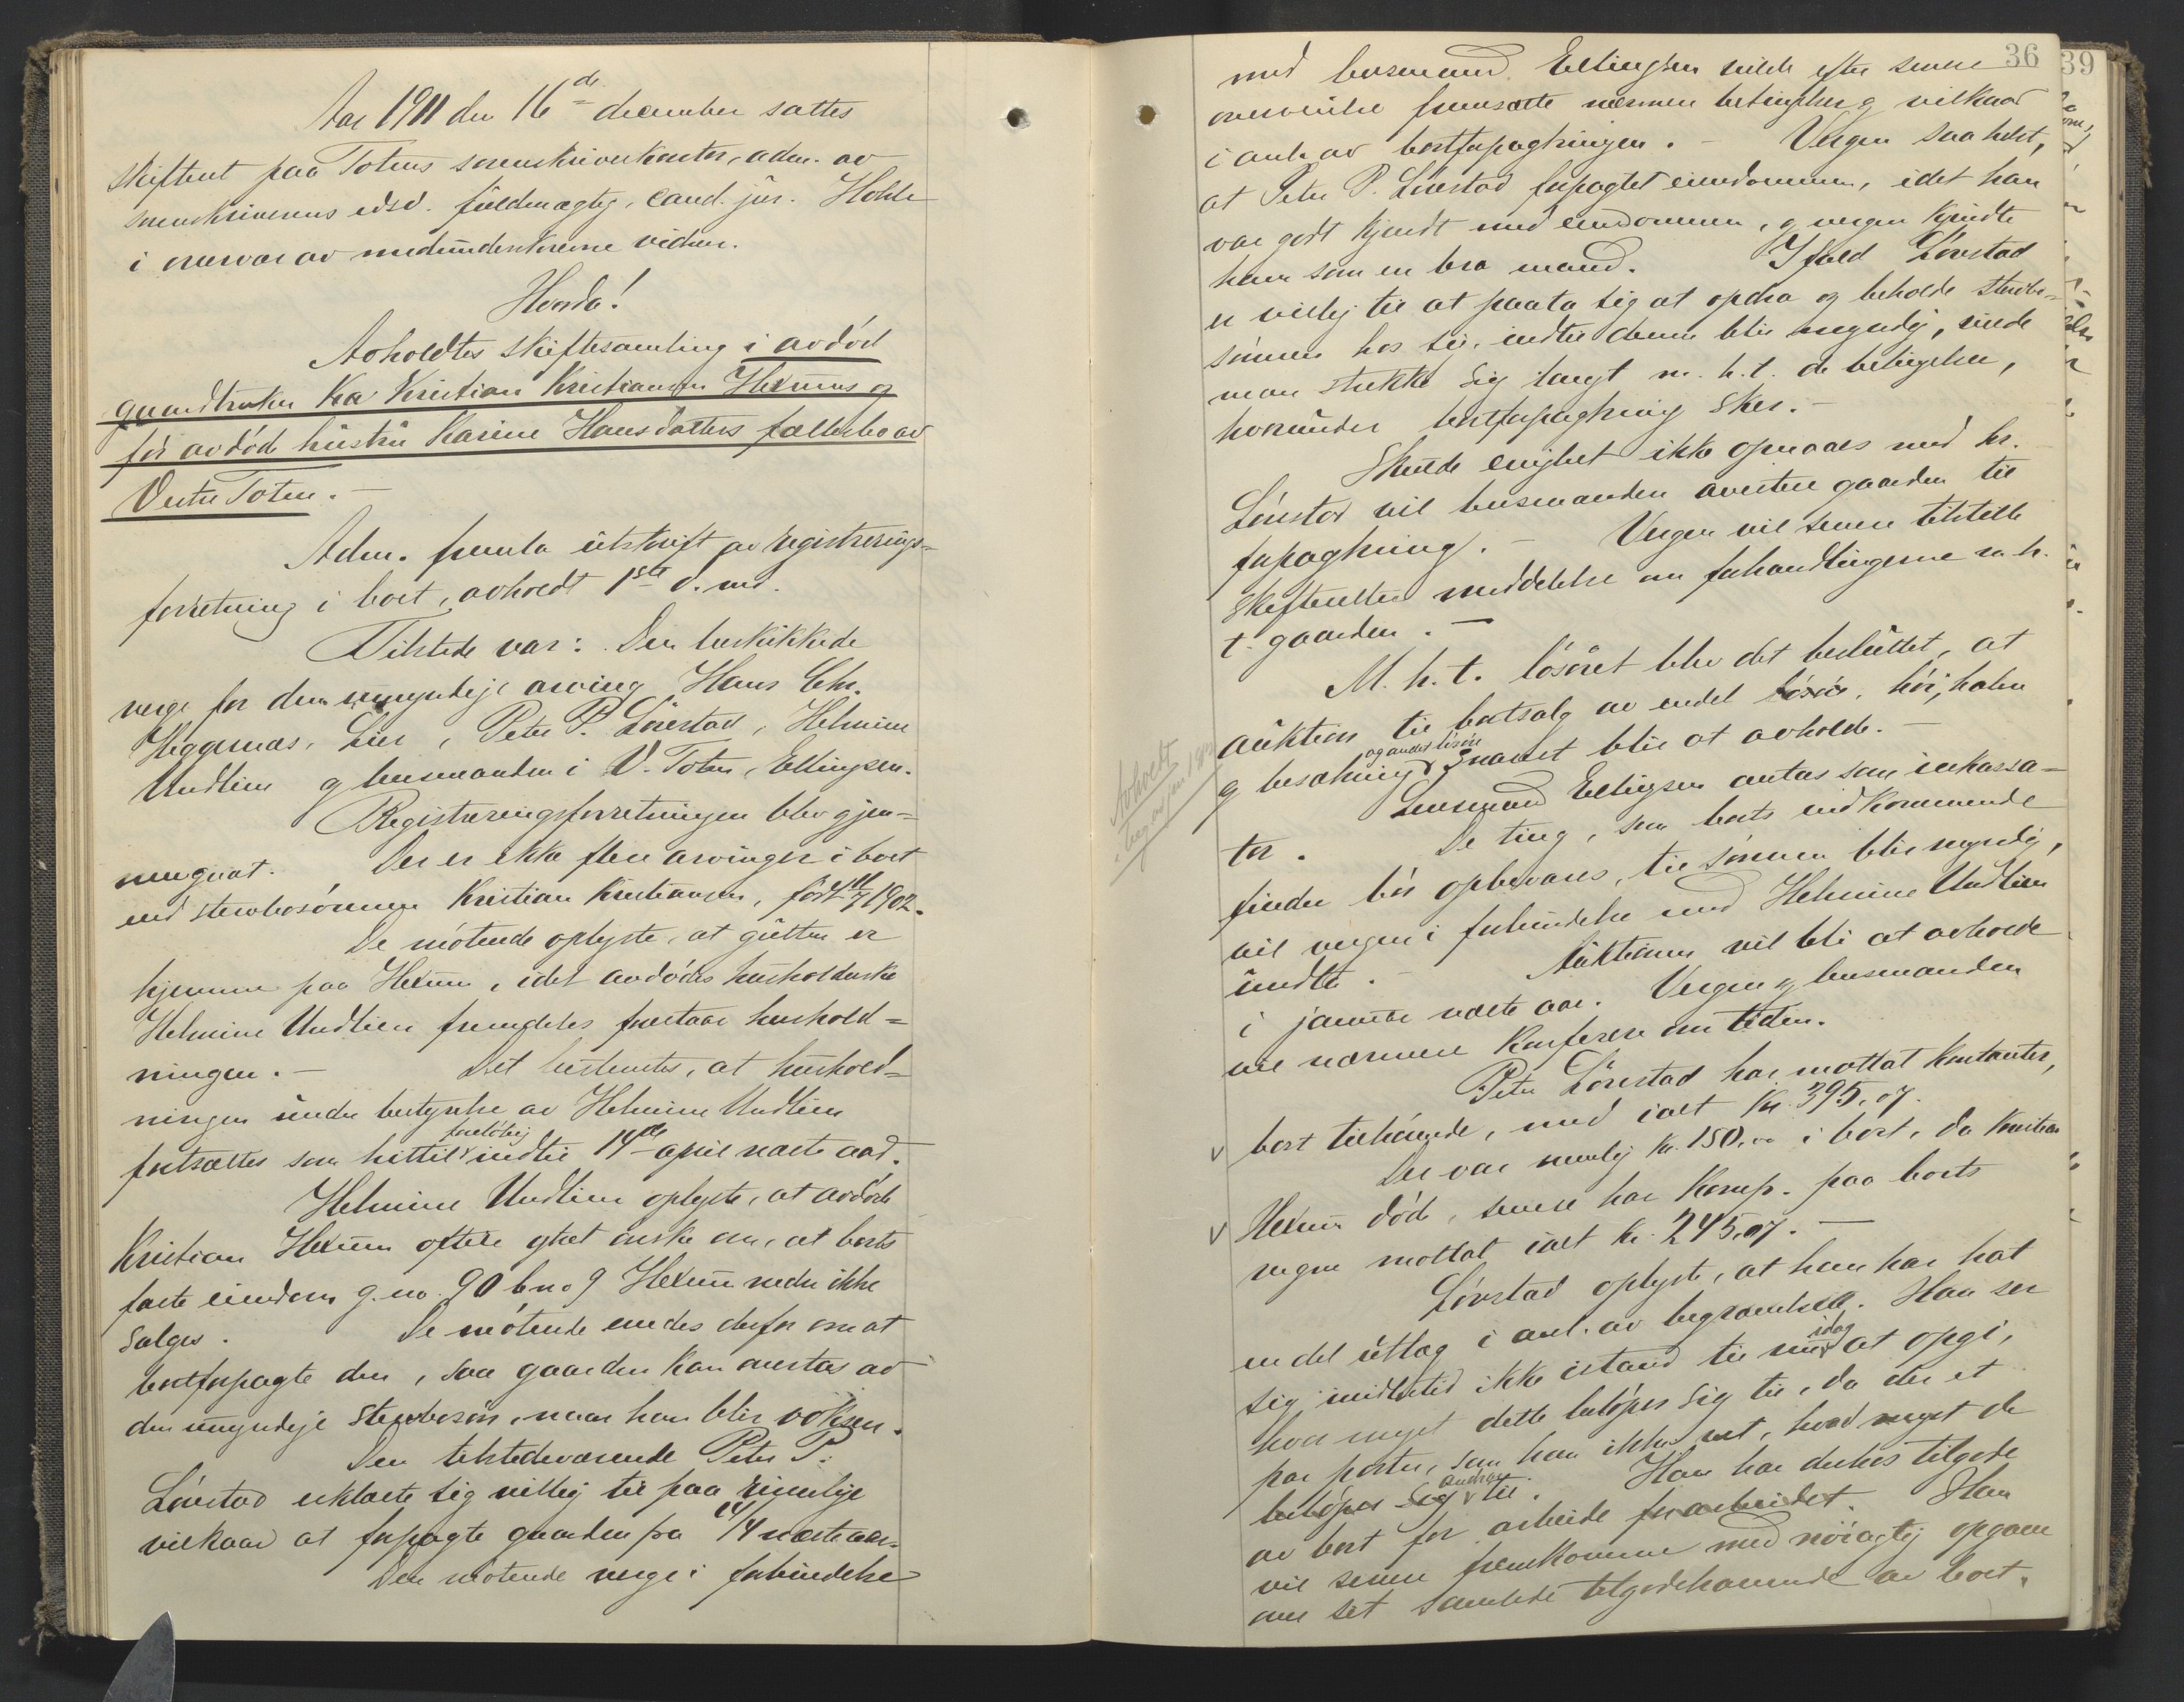 Aar 1911 den 16de december sattes
skifteret paa Totens sorenskriverkontor, adm. av
sorenskriverens edsv. fuldmægtig, cand. jur. Hohle
i overvær av medundertskrevne vidner.
Hvorda!
Avholdtes skiftesamling i avdød
gaardbruker Kristian Kristiansen Hexums og
før avdød hustru Karine Hansdatters fællesbo av
Vestre Toten. –
Adm. fremla utskrift av registrerings=
forretning i boet, avholdt 1ste d. md.
Tilstede var: Den beskikkede
verge for den umyndige arving Hans Chr.
Heggenæs, Lier, Peter P. Lönstad, Helmine
Undlien og lensmanden i V. Toten, Ellingsen.
Registreringsforretningen blev gjen=
nemgaat. Der er ikke flere arvinger i boet
end stervbosönnen Kristian Kristiansen, född 1902.
De mötende oplyste, at gutten er
hjemme paa Hexum, idet avdödes husholderske
Helmine Undlien fremdeles forestaar hushold=
ningen. – Det bestemtes, at hushold=
ningen under bestyrelse av Helmine Undlien
fortsættes som hittil foreløbig indtil 14de april næste aar.
Helmine Undlien oplyste, at avdöde
Kristian Hexum oftere ytret önske om, at boets
faste eiendom g.no. 90 b.no 9 Hexum nedre ikke
sælges. De mötende enedes derfor om at
bortforpagte den, saa gaarden kan overtas av
den umyndige stervbosön, naar han blir voksen.
Den tilstedeværende Peter P.
Lönstad erklærte sig villig til paa rimelige
vilkaar at forpagte gaarden fra 14/4 næste aar.
Den mötende verge i forbindelse
36
39
med lensmand Ellingsen vilde efter senere
overveielse fremsætte nærmere betingelser og vilkaar
i anl. av bortforpagtningen. – Vergen saa helst,
at Peter P. Lönstad forpagtet eiendommen, idet han
var godt kjendt med eiendommen, og vergen kjendte
ham som en bra mand. Ifald Lönstad
er villig til at paata sig at opdra og beholde stervbo=
sönnen hos sig, indtil denne blir myndig, vilde
man strekke sig langt m. h. t. de betingelser,
hvorunder bortforpagtning sker. –
Skulde enighet ikke opnaaes med hr.
Lönstad vil lensmanden avertere gaarden til
forpagtning. – Vergen vil senere tilstille
skifteretten meddelelse om forhandlingerne m. h.
t. gaarden. –
M. h. t. lösöret blev det besluttet, at
auktion til bortsalg av endel lösöre, höi, halm
og besætning og andet lösöre snarest blir at avholde. –
Avholdt
Lensmand Ellingsen antas som inkassa=
tor. De ting, som boets vedkommende
finder bör opbevares, til sönnen blir myndig,
vil vergen i forbindelse med Helmine Undlien
undta. – Auktionen vil bli at avholde
i januar næste aar. Vergen og lensmanden
vil nærmere konferere om tiden.
Peter Lönstad har mottat kontanter,
v boet tilhörende, med ialt kr. 395,07.
Der var nemlig kr. 150,00 i boet, da Kristian
v Hexum döde, senere har komp. paa boets
vegne mottat ialt kr. 245,07. –
Lönstad oplyste, at han har hat
en del utlæg i anl. av begravelsen. Han ser
sig imidlertid ikke istand til idag at opgi,
hvor meget dette belöper sig til, da der er et
par poster, som han ikke vet, hvad meget de
belöper sig til. Han har derhos tilgode
av boet for arbeide forarbeidet. Han
vil senere fremkomme med nöiagtig opgave
over sit samlede tilgodehavende av boet.